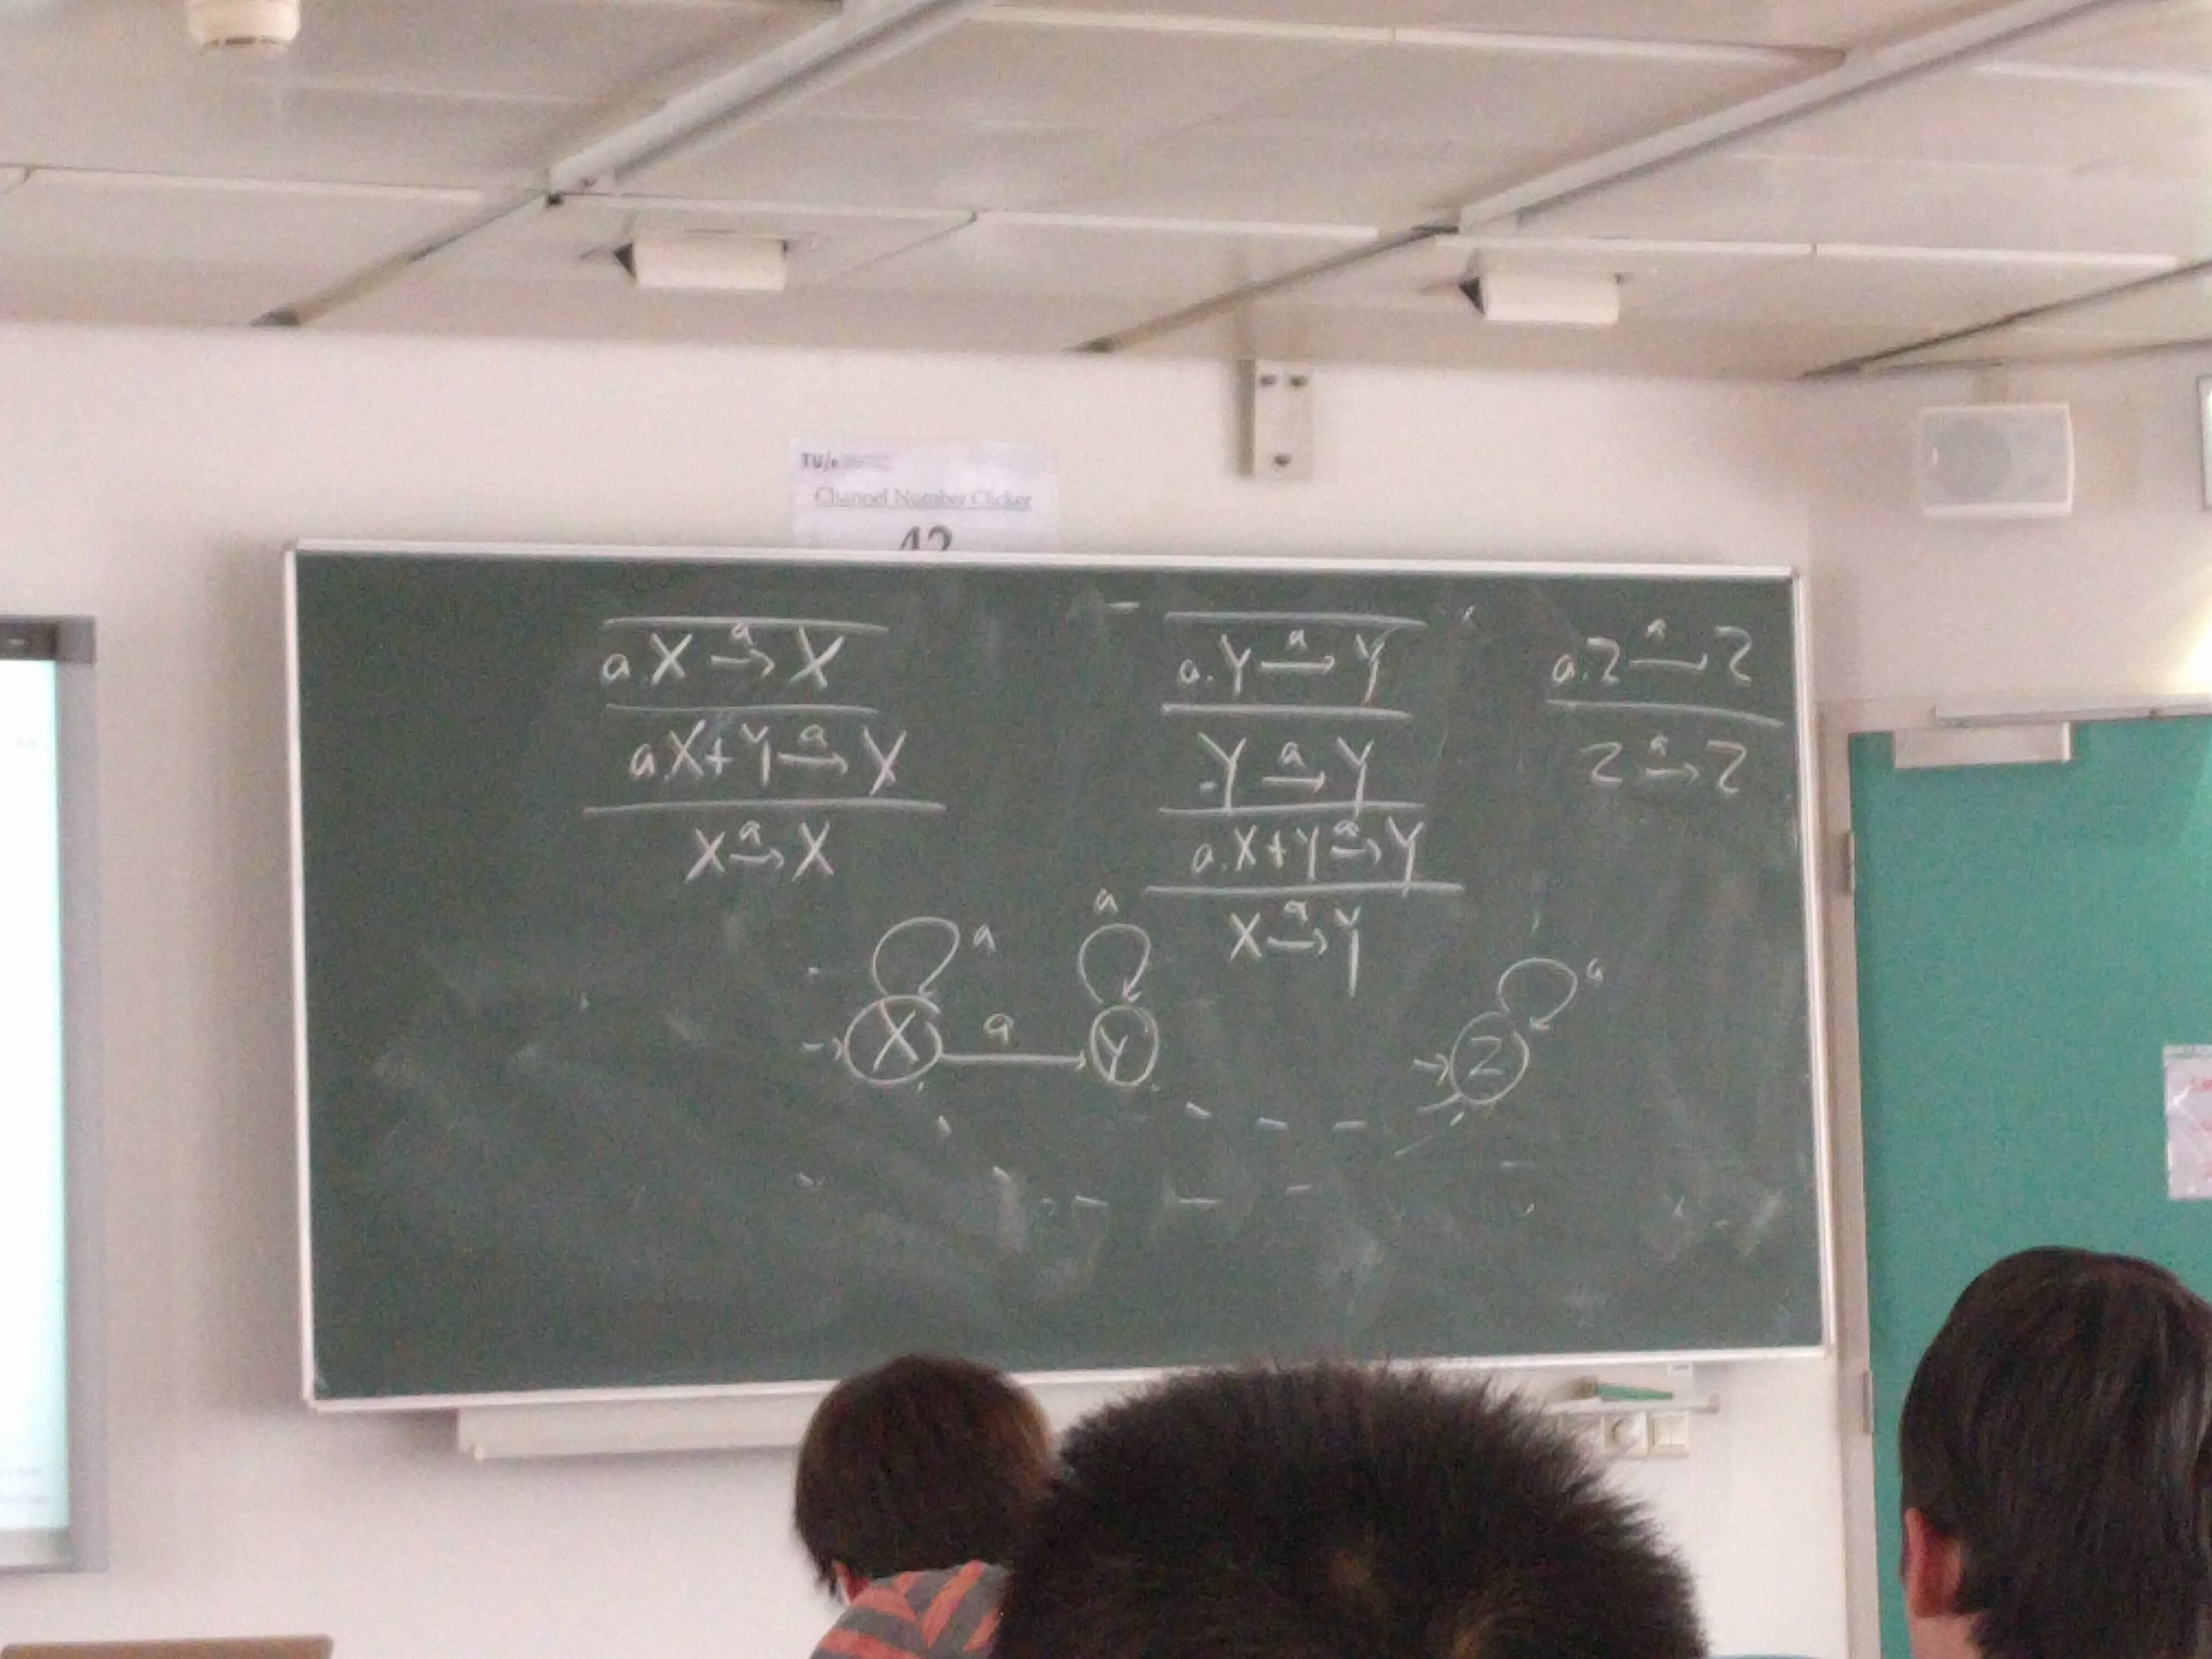 TU/e
Channel Number Clicker
42
a.X →a X
a.X+Y →a X
X →a X
a.Y →a Y
Y →a Y
a.X+Y →a Y
X →a Y
a.Z →a Z
Z →a Z
a
a
X
a
Y
a
Z